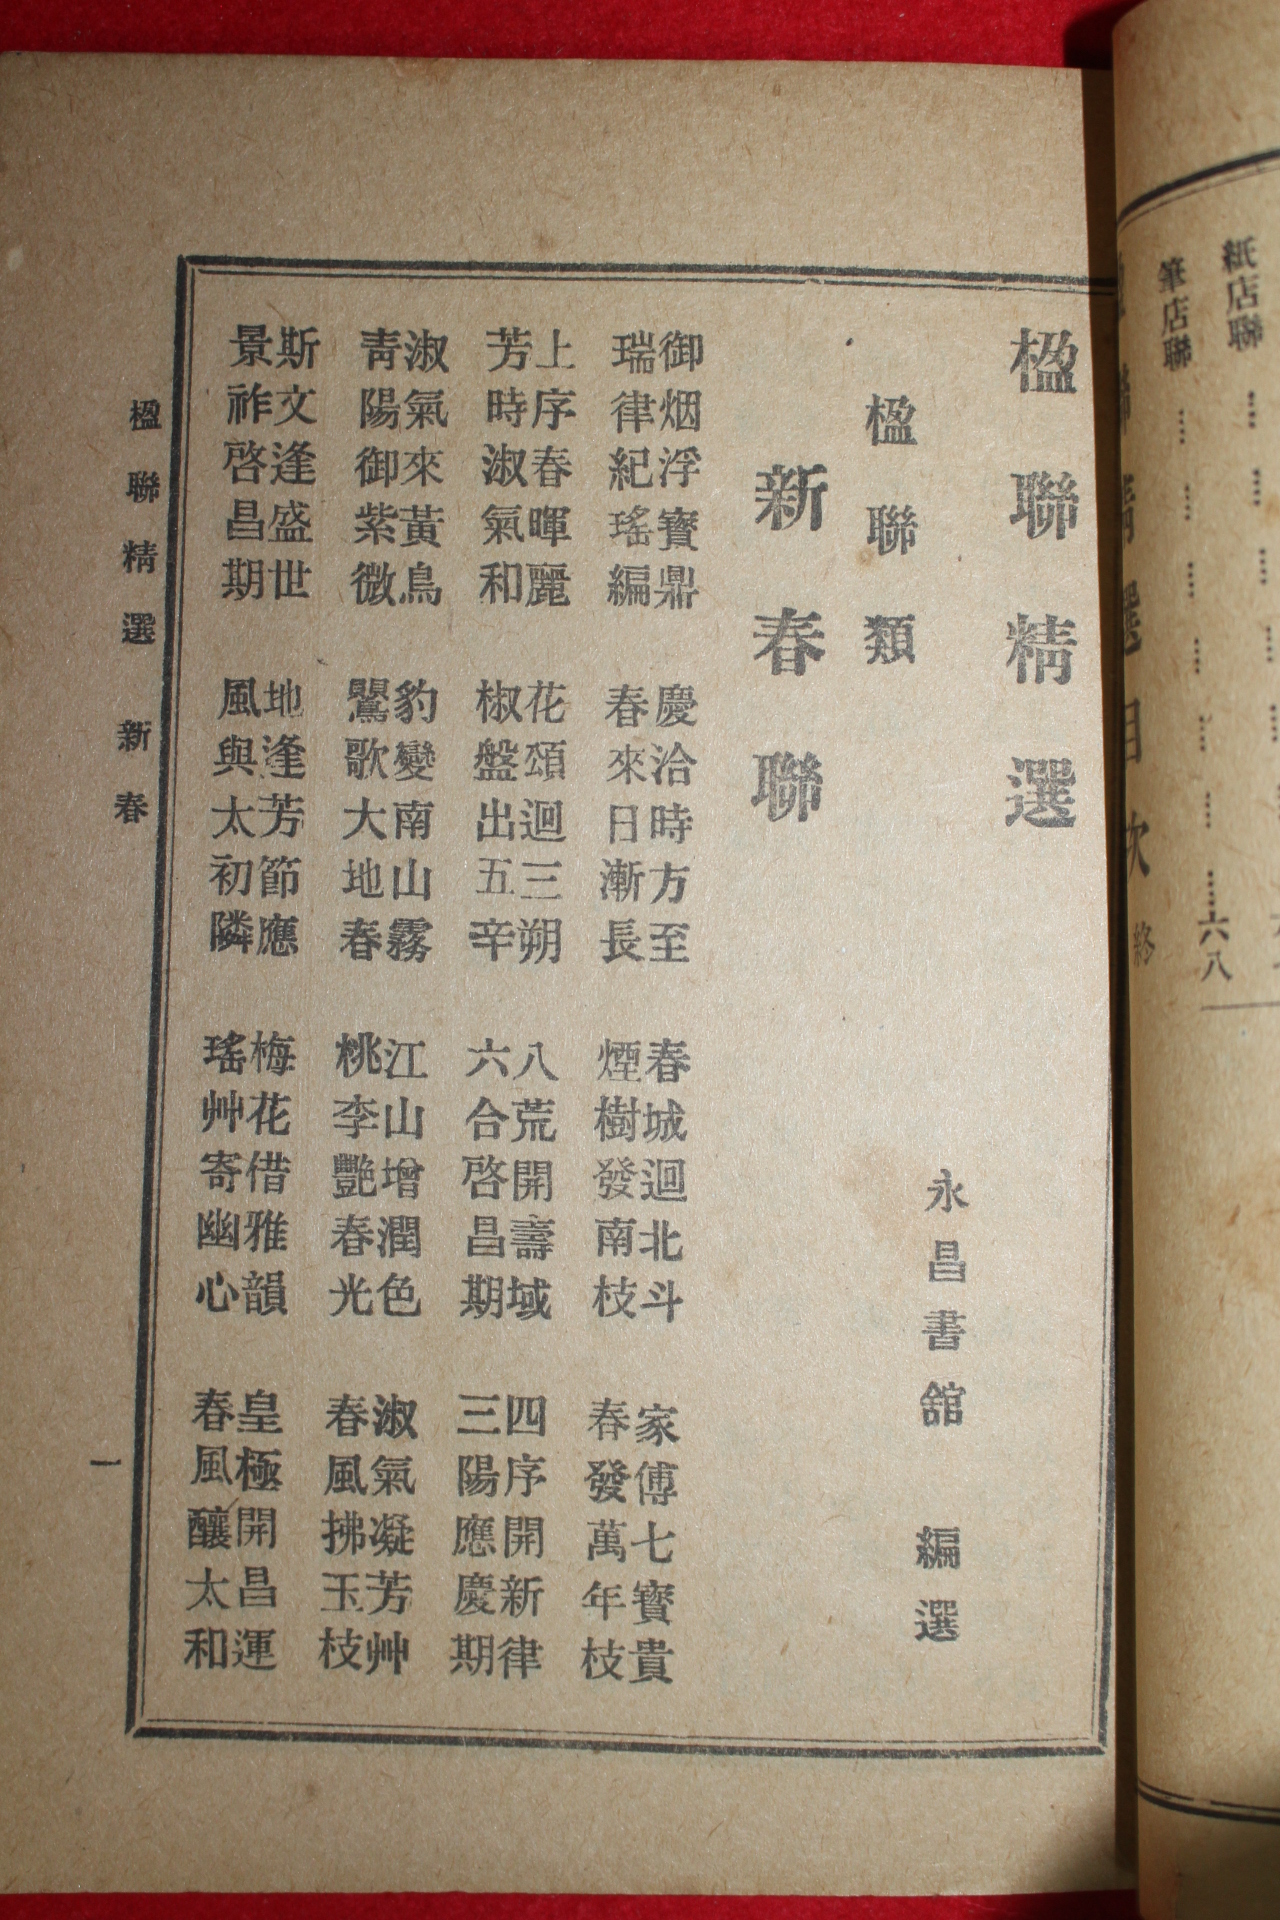 紙店聯
筆店聯 六八
聯精選目次 終
楹聯精選
永昌書舘 編選
楹聯類
新春聯
御烟浮寶鼎 慶洽時方至 春城迴北斗 家傳七寶貴
瑞律紀瑤編 春來日漸長 煙樹發南枝 春發萬年枝
上序春暉麗 花頌迴三朔 八荒開壽域 四序開新律
芳時淑氣和 椒盤出五辛 六合啓昌期 三陽應慶期
淑氣來黃鳥 豹變南山霧 江山增潤色 淑氣凝芳艸
靑陽御紫微 鸎歌大地春 桃李艷春光 春風拂玉枝
斯文逢盛世 地逢芳節應 梅花借雅韻 皇極開昌運
景祚啓昌期 風與太初隣 瑤艸寄幽心 春風釀太和
楹聯精選 新春 一